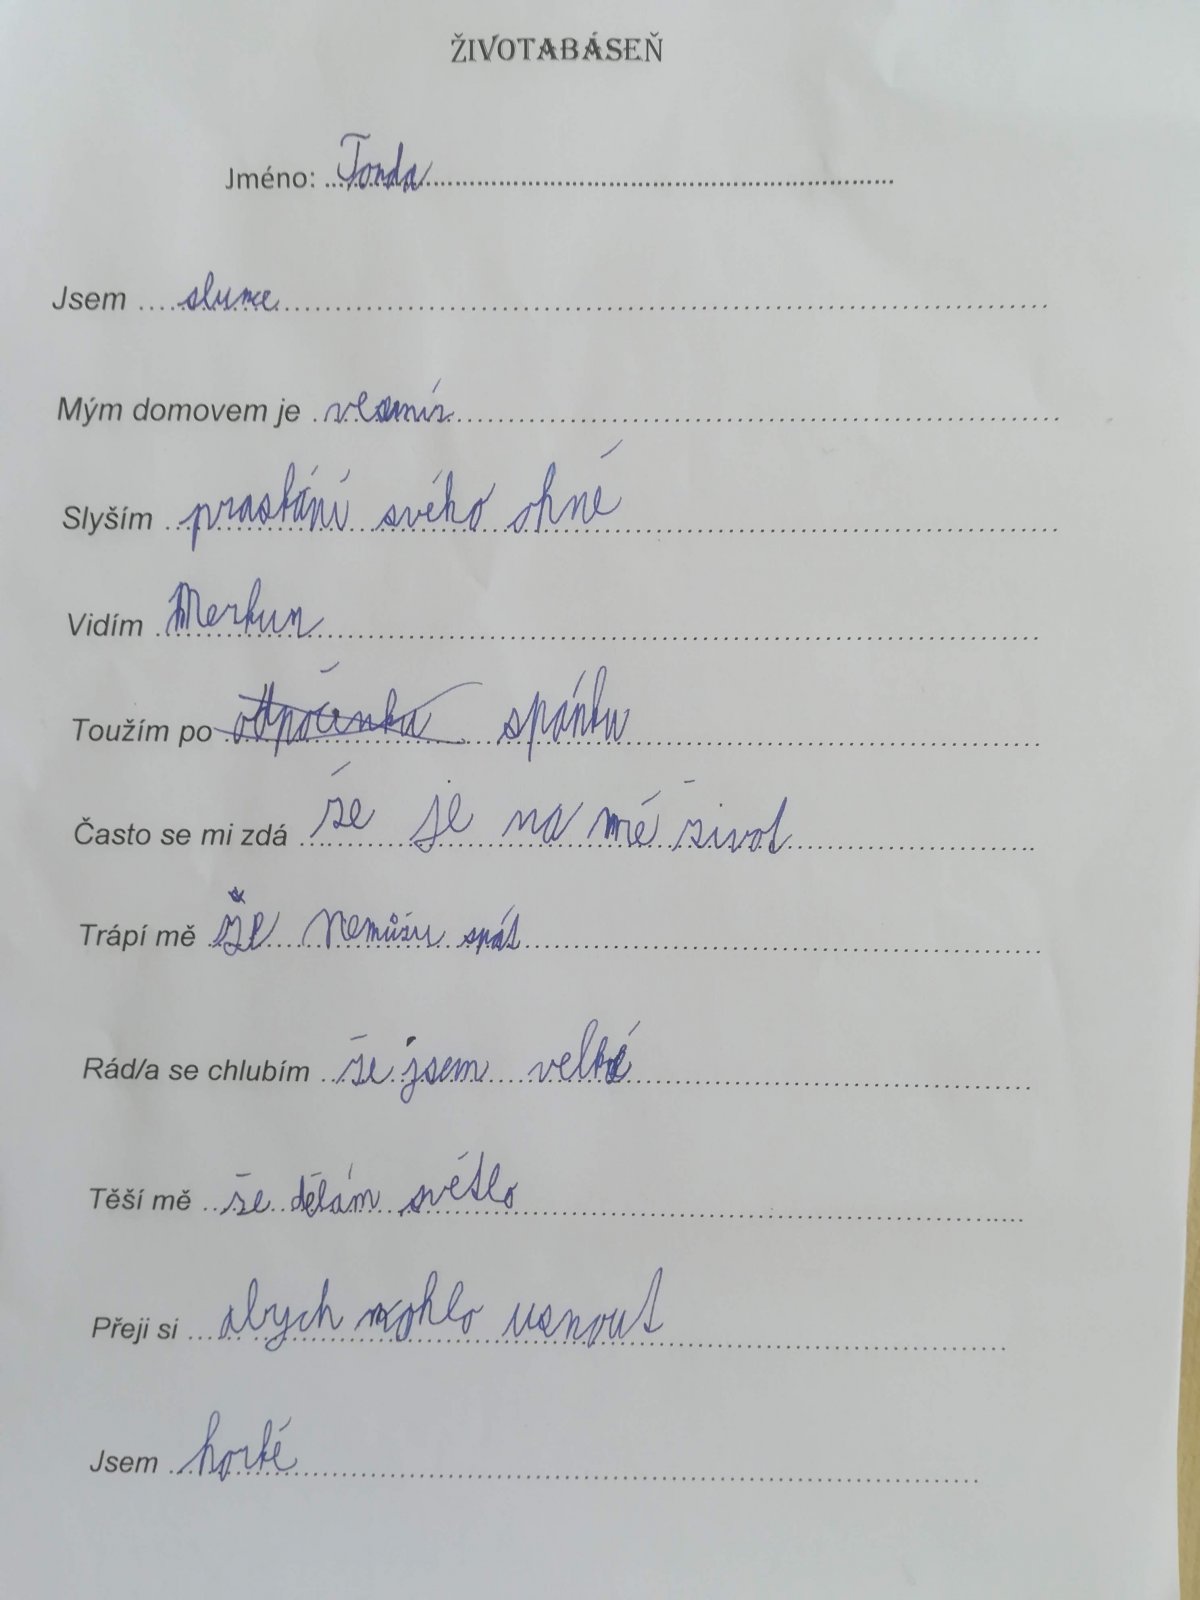 ŽIVOTABÁSEŇ
Jméno: Tonda
Jsem slunce
Mým domovem je vesmír
Slyším praskání svého ohně
Vidím Merkur
Toužím po odpočinku spánku
Často se mi zdá že je na mě život
Trápí mě že nemůžu spát
Rád/a se chlubím že jsem velké
Těší mě že dělám světlo
Přeji si abych mohlo usnout
Jsem horké